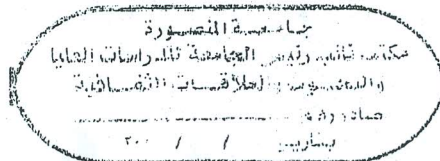 جامعة المنصورة
مكتب نائب رئيس الجامعة للدراسات العليا
والبحوث والعلاقات الثقافية
صادر رقم
بتاريخ / / ٢٠٠